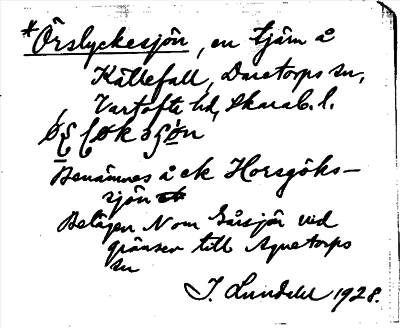 *Örslyckesjön, en tjärn å
Källefall, Daretorps sn,
Vartofta hd, Skarab. l.
Benämnes å ek Horsgöks-
sjön
Belägen N om Gåsjön vid
gränsen till Agnetorps
sn
J. Lundahl 1928.